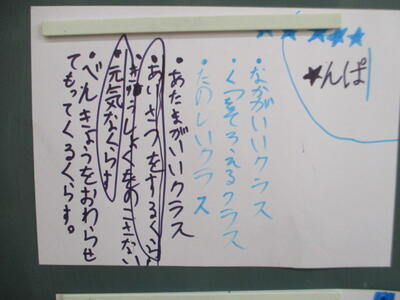 ★んぱ
・なかがいいクラス
・くつをそろえるクラス
・たのしいクラス
・あたまがいいクラス
・あいさつをするくらす
・きゅうしょくをのこさない
・元気なくらす
・べんきょうをおわらせ
てもってくるくらす。